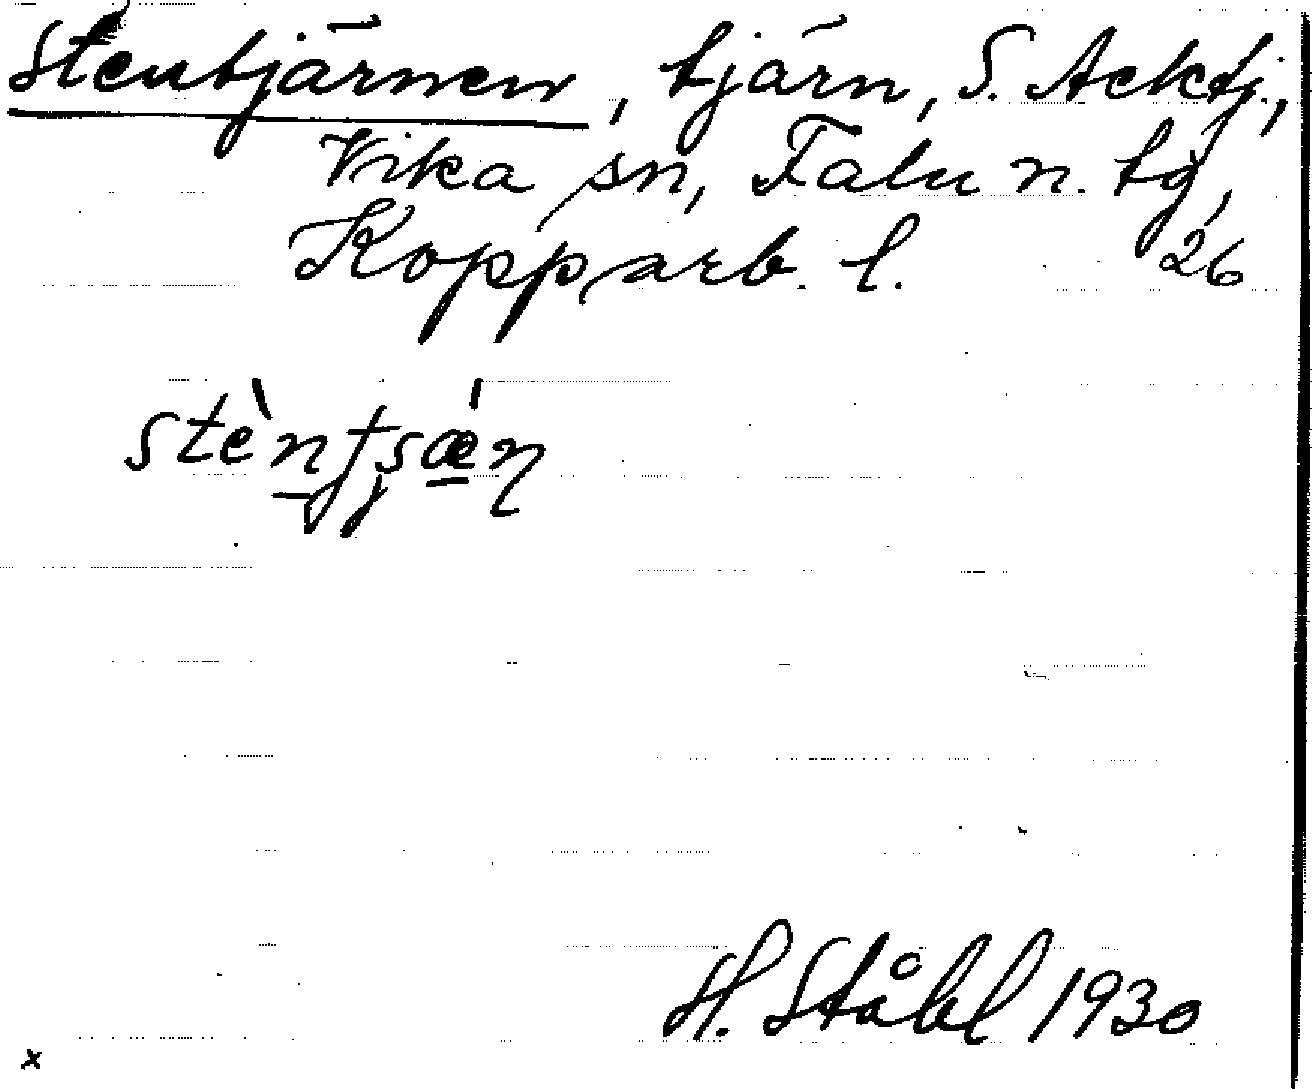 Stentjärnen, tjärn, S. Acktj,
Vika sn, Falu n. tg,
Kopparb. l. 26
H. Ståhl 1930
x